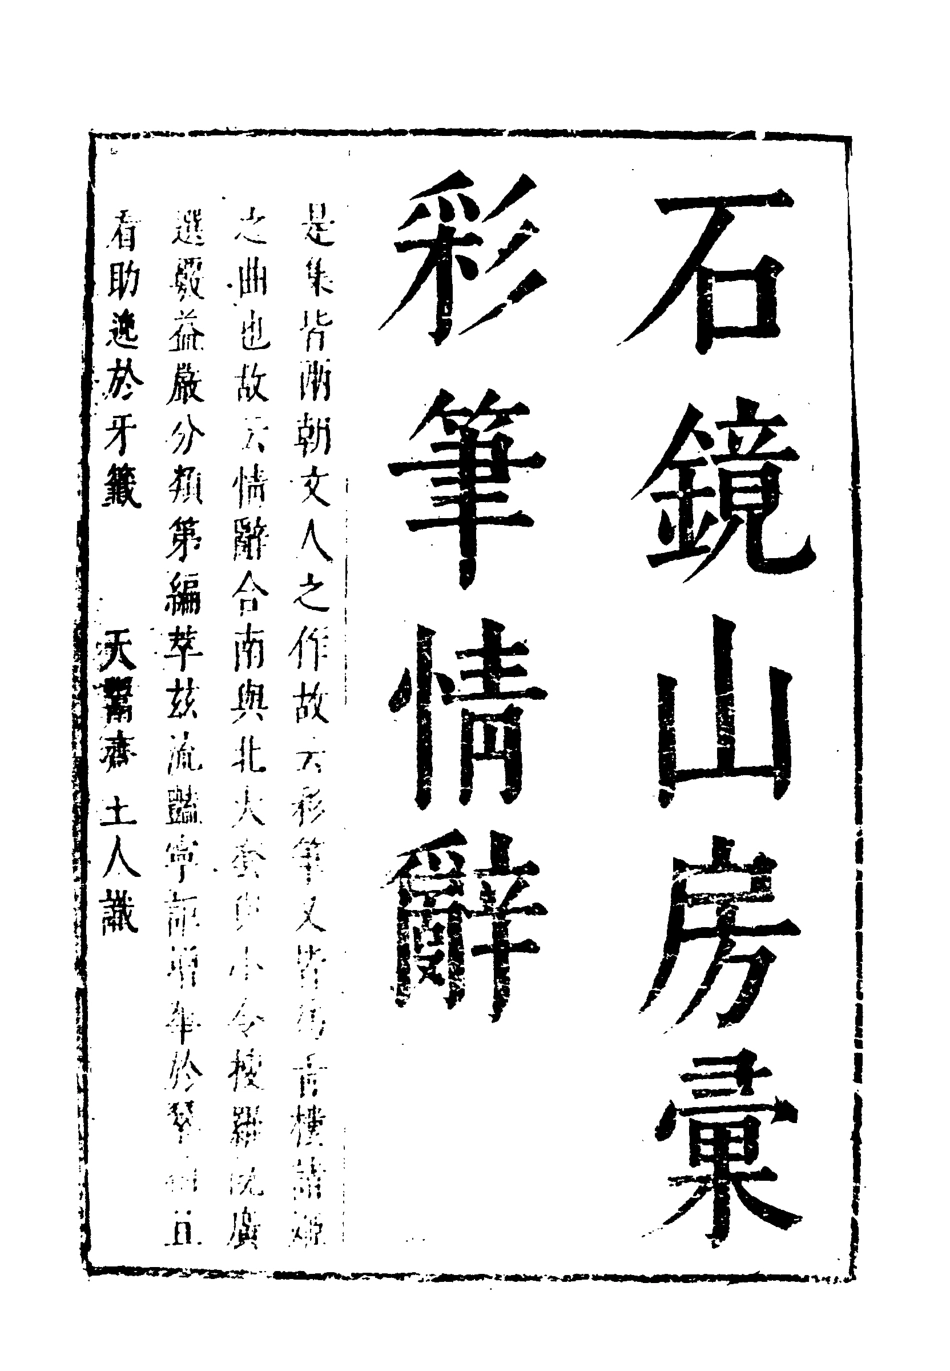 石鏡山房彙
彩筆情辭
是集皆兩朝文人之作故云彩筆又皆為青樓諸姬
之曲也故云情辭合南與北大套與小令搜羅既廣
選嚴益嚴分類第編萃茲流豔寧詎增華於琴 且
看助逸於牙籤
天 齋主人識